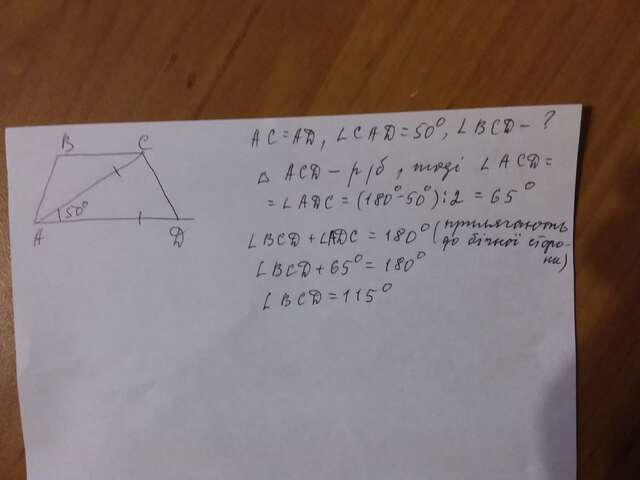 B C
AC=AD, ∠CAD=50°, ∠BCD-?
△ ACD - р/б, тоді ∠ACD=
=∠ADC=(180°-50°):2=65°
50°
A D
∠BCD+∠ADC=180° (прилягають
до бічної сторо-
ни)
∠BCD+65°=180°
∠BCD=115°